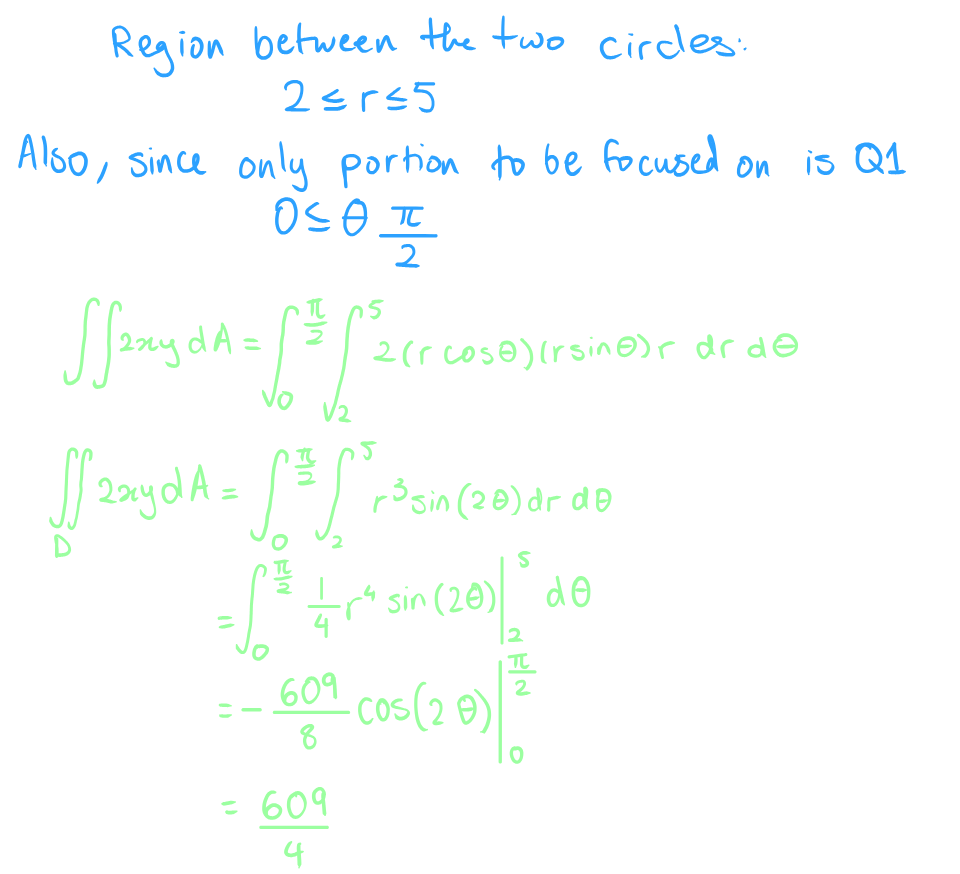 Region between the two circles:
2 ≤ r ≤ 5
Also, since only portion to be focused on is Q1
0 ≤ θ π/2
∬ 2xy dA = ∫_0^{π/2} ∫_2^5 2(r cosθ)(r sinθ) r dr dθ
∬_D 2xy dA = ∫_0^{π/2} ∫_2^5 r^3 sin(2θ) dr dθ
= ∫_0^{π/2} 1/4 r^4 sin(2θ)|_2^5 dθ
= - 609/8 cos(2θ)|_0^{π/2}
= 609/4